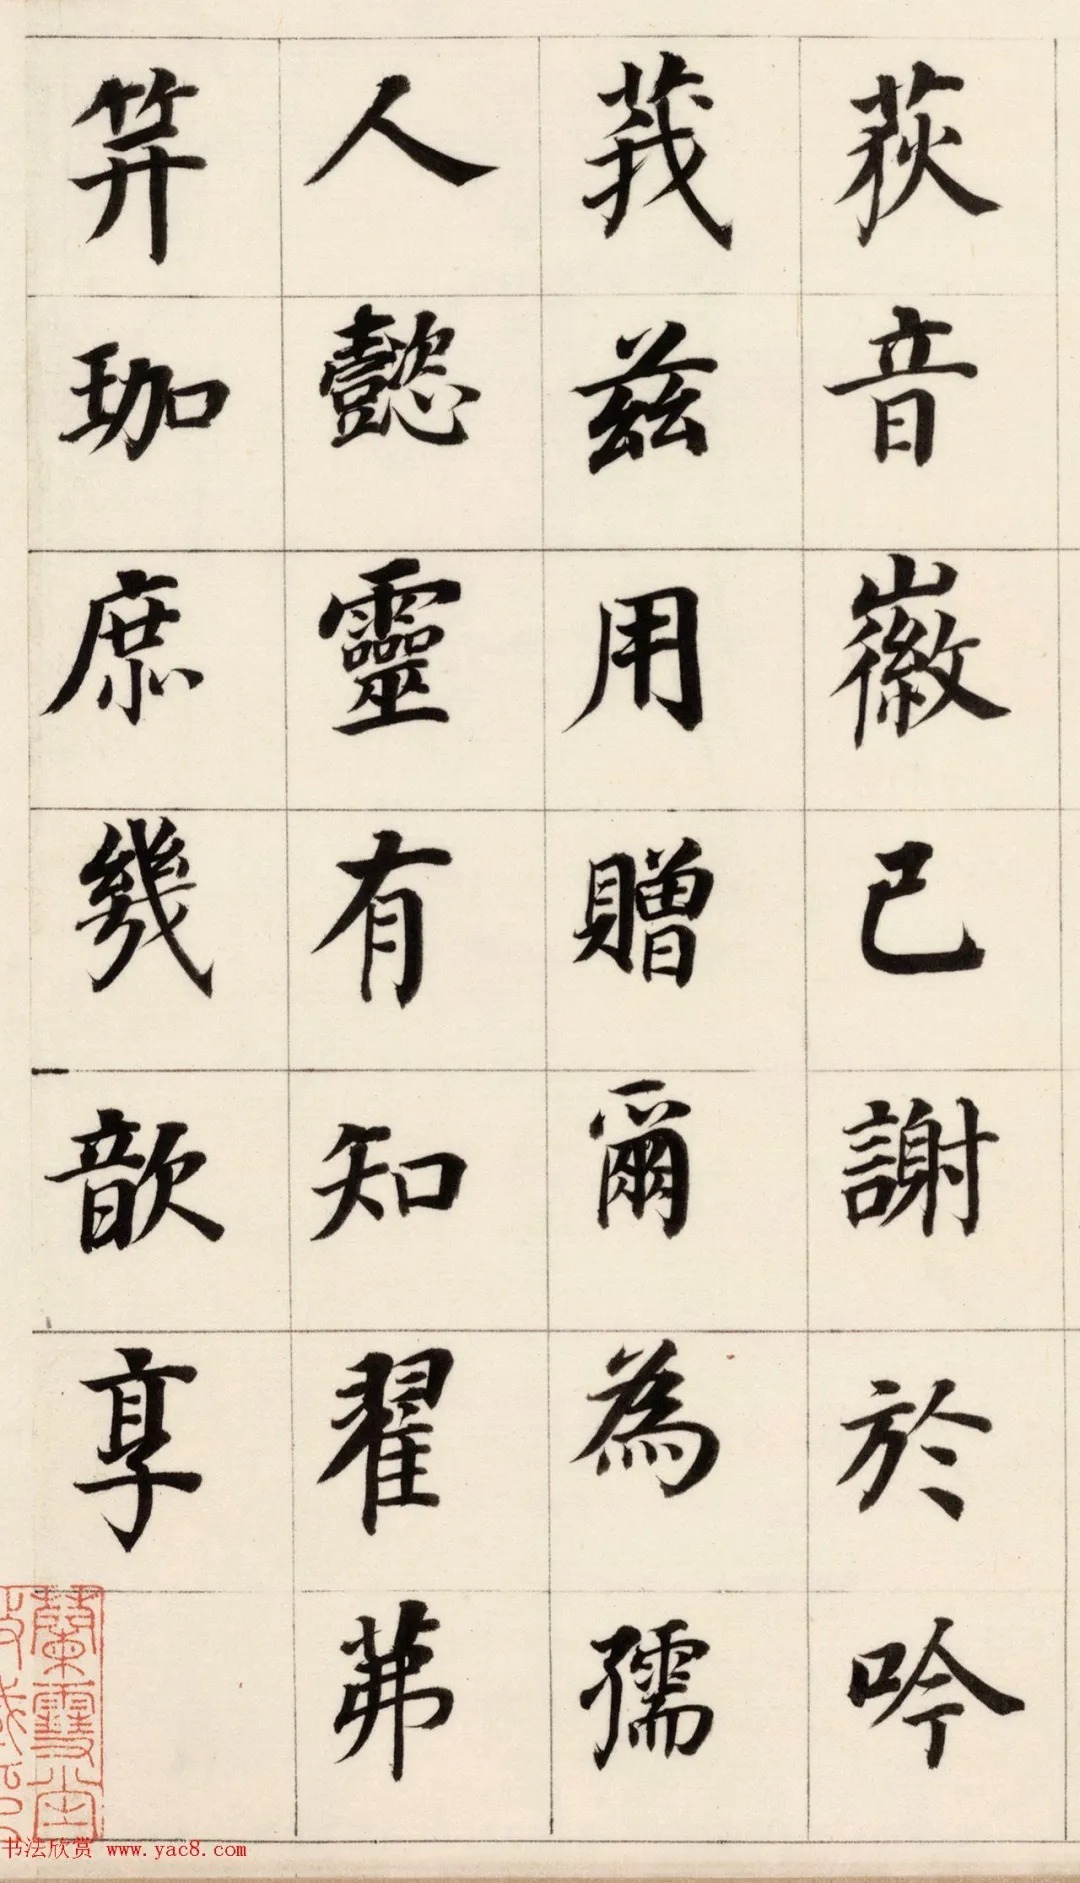 荻音徽已謝於吟
莪茲用贈爾為孺
人懿靈有知翟茀
笄珈庶幾歆享
蘭雪堂
书法欣赏 www.yac8.com